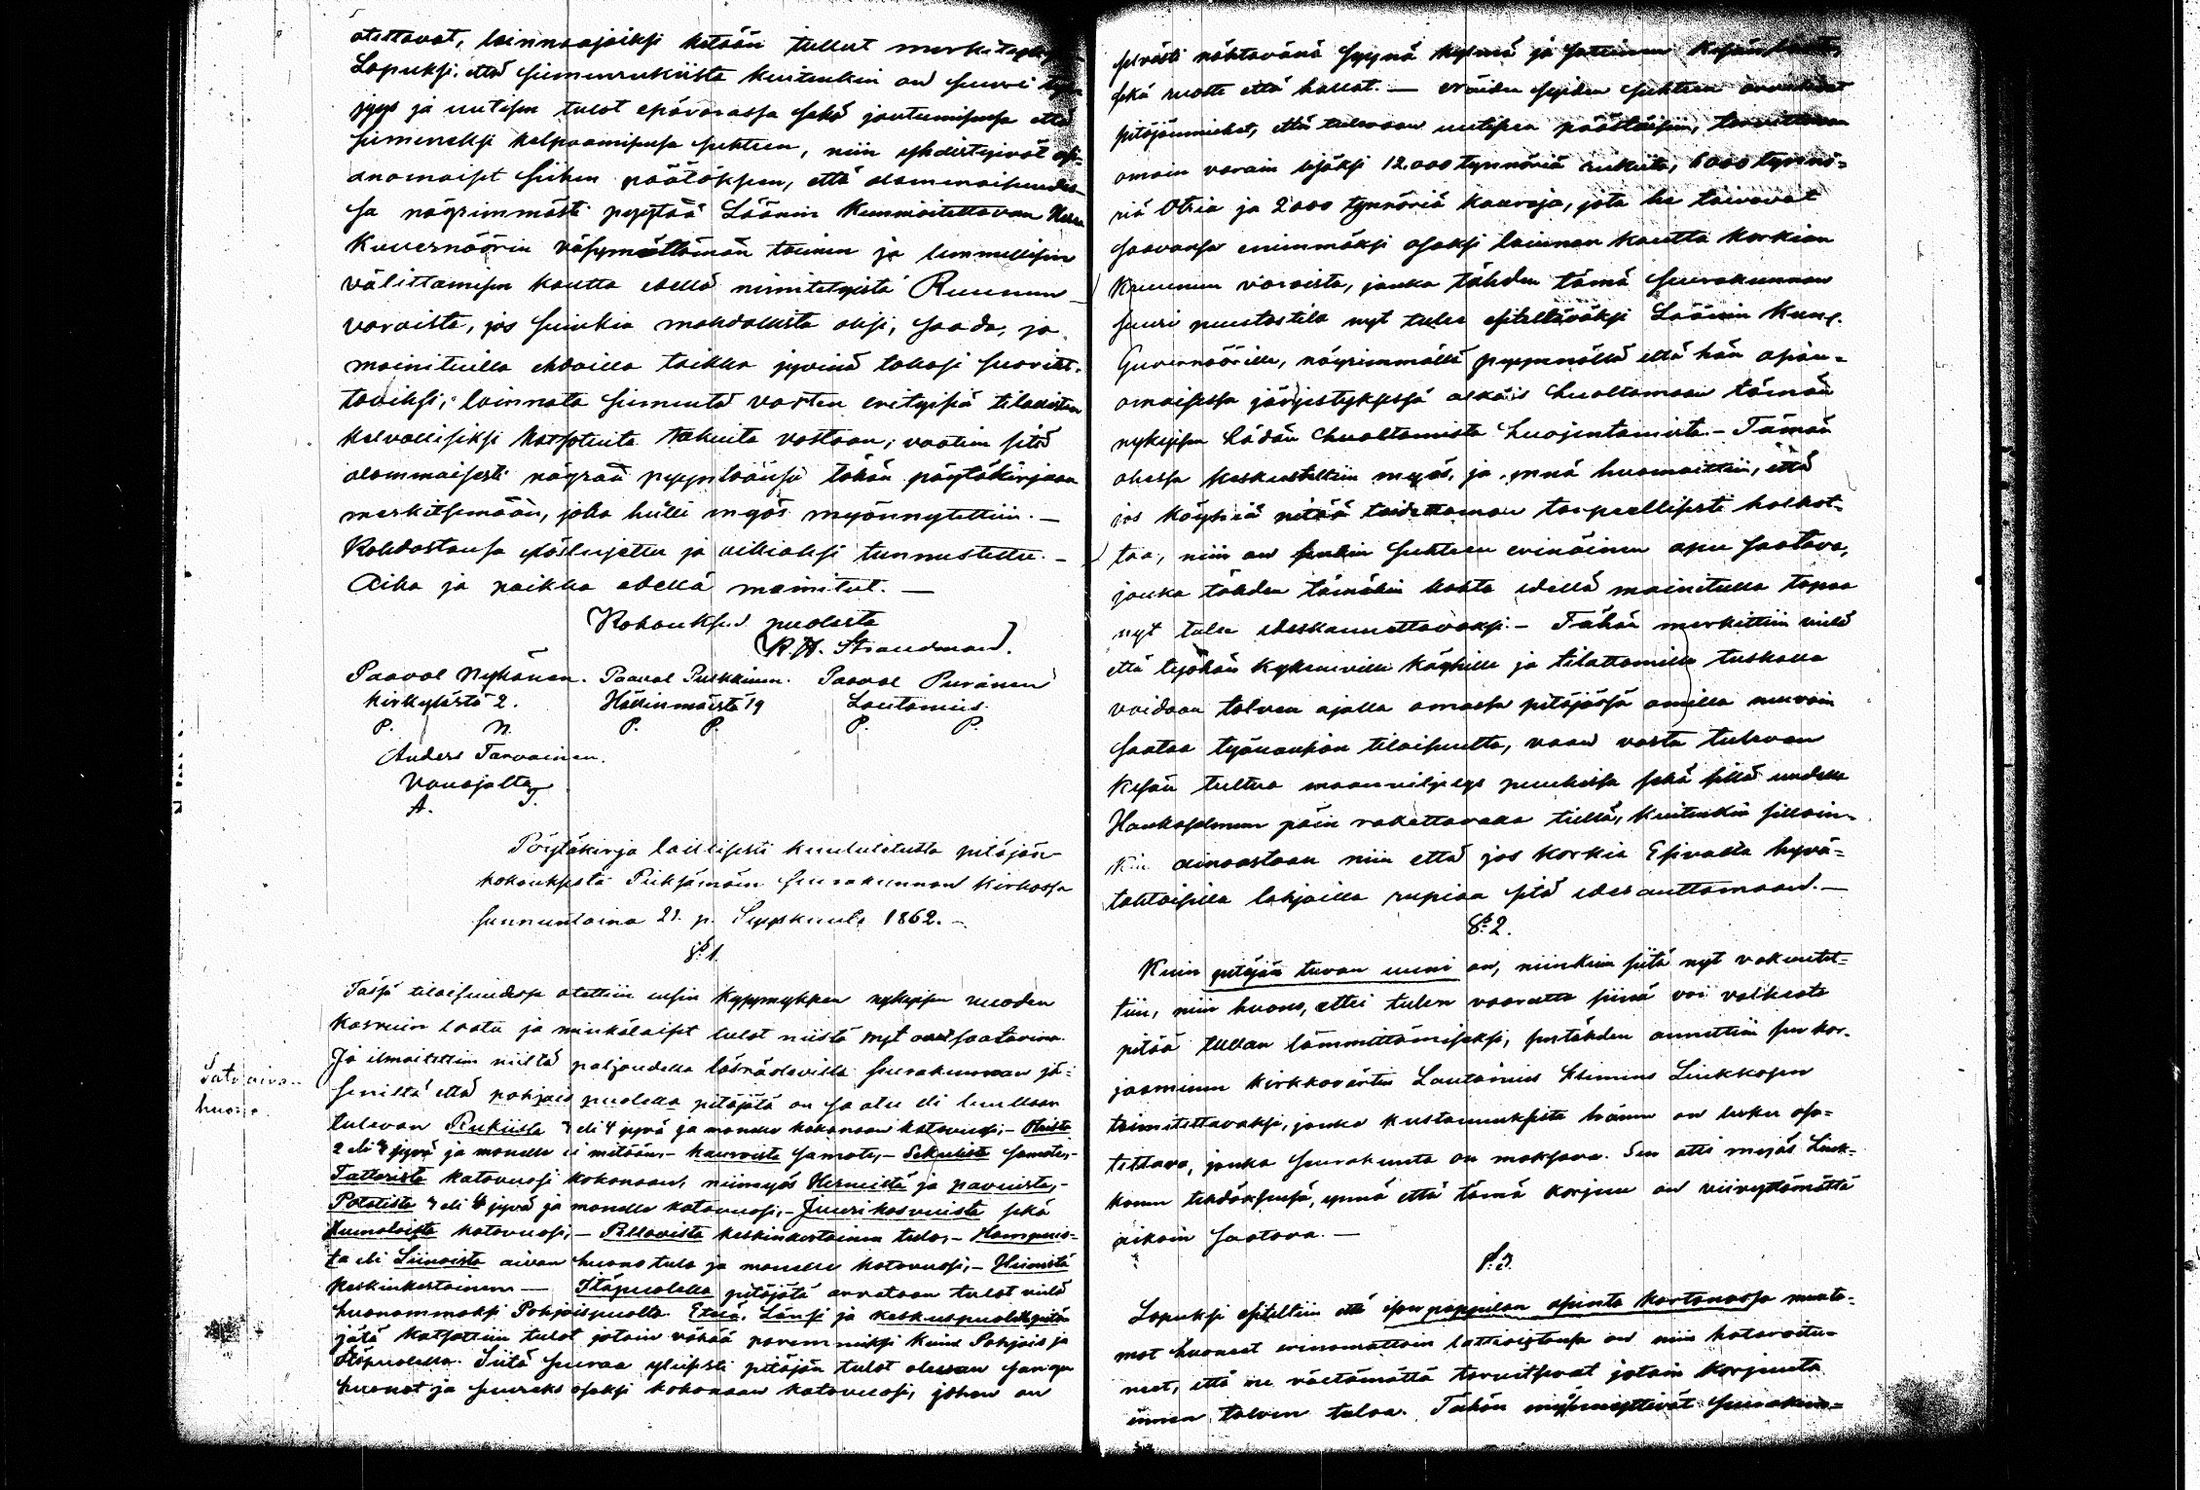 otettavat, lainnaajaiksi ketään tullut
Lopuksi, että siemenrukiista kuitenkin on suuri
jyys ja uutisen tulot epävarassa sekä joutumisessa että
siemeneksi kelpaamisessa suhteen, niin yhdistyivät asi-
anomaiset siihen päätökseen, että alamaisuudes-
sa nöyrimmästi pyytää Läänin Kunnioitettavan Herra
Kuvernöörin väsymättömän toimen ja lemmellisen
välittämisen kautta edellä nimitetyistä Ruunun
varoista, jos suinkin mahdollista olisi, saada, ja
mainituilla ehdoilla taikka jyvinä takasi suorit-
taviksi, lainnata siementä vasten erityisiä tilallisten
kelvollisiksi katsotuita takuita vastaan; vaatien sitä
alammaisesti nöyrää pyyntöänsä tähän pöytäkirjaan
merkitsemään, joka heille myös myönnytettiin. —
Kohdastansa ylösluettu ja oikiaksi tunnustettu. —
Aika ja paikka edellä mainitut. —
Kokouksen puolesta
K. H. Strandman.
Paavol Nykänen. Paavol Puskkinen. Paavol Puranen
Kirkylästä 2. Hällinmäistä 19 Lautamies.
P. N. P. P. P. P.
Anders Tarvainen.
Vanajalta
A. T.
Pöytäkirja laillisesti kuulutetusta pitäjän-
kokouksesta Pieksämäen seurakunnan kirkossa
sunnuntaina 21. p. Syyskuuta 1862. —
§ 1.
Tässä tilaisuudessa otettiin ensin kysymykseen nykyisen vuoden
kasvuin laatu ja minkälaiset tulot niistä nyt ovat saatavina.
Ja ilmoitettiin niiltä paljoudella läsnäolevilta seurakunnan jä-
seniltä että pohjais puolella pitäjätä on saatu eli luullaan
tulevan Rukiista 3 eli 4 jyvä ja monelle kokonaan katovuosi; — Ohrista
2 eli 3 jyvä ja monelle ei mitään; — kauroista samate; — Sekulista samate; —
Tattarista katovuosi kokonaan, niinmyös Herneistä ja pavuista; —
Potatista 3 eli 4 jyvä ja monelle katovuosi; — Juurikasvuista sekä
Humaloista katovuosi; — Pellavista keskinkertainen tulo; — Hampuis-
ta eli Liinoista aivan huono tulo ja monelle katovuosi; — Heinistä
keskinkertainen — Itäpuolella pitäjätä arvataan tulot vielä
huonommaksi Pohjaispuolta. Etelä, Länsi ja keskuspuolella pitä-
jätä katsottiin tulot jotain vähää paremmiksi kuin Pohjais ja
Itäpuolella. Siitä seuraa yleisesti pitäjän tulot olevan sangen
huonot ja suureks osaksi kokonaan katovuosi, johon on
huono
selvästi nähtävänä syynä kylmä ja satteinen
sekä ruoste että hallat. — eräiden syiden suhteen arvelivat
pitäjänmiehet, että tulevaan uutiseen päästäisiin, tarvittavan
omain varain lisäksi 12.000 tynnöriä rukiita, 6000 tynnö-
riä Ohria ja 2000 tynnöriä kauroja, jota he toivovat
saavansa enimmäksi osaksi lainnan kautta korkian
Kruunun varoista, jonka tähden tämä seurakunnan
suuri puutostila nyt tulee esiteltäväksi Läänin Kunl.
Guvernöörille, nöyrimmällä pyynnöllä että hän asian-
omaisessa järjestyksessä aikais huoltamaan tämän
nykyisen hädän huoltamista huojentamista. — Tämän
ohessa keskusteltiin myös, ja ynnä huomaittiin, että
jos köyhiä pitää taidettaman tarpeellisesti holhot-
taa, niin on senkin suhteen erinäinen apu saatava,
jonka tähden tämäkin kohta edellä mainitulla tapaa
nyt tulee edeskannettavaksi. — Tähän merkittiin vielä
että työhön kykeneville köyhille ja tilattomille tuskalla
voidaan talven ajalla omassa pitäjässä omilla neuvoin
saataa työnansion tilaisuutta, vaan vasta tulevan
kesän tultua maanviljelys puuhissa sekä sillä uudella
Haukaselmun päin rakettavalla tiellä, kuitenkin silloin-
kin ainoastaan niin että jos korkia Esivalta hyvä-
tahtoisilla lahjoilla rupiaa sitä edesauttamaan. —
§ 2.
Kuin pitäjän tuvan uuni on, niinkuin sitä nyt vakuutet-
tiin, niin huono, ettei tulen vaaratta siinä voi valkeata
pitää tuvan lämmittämiseksi, sentähden annettiin sen kor-
jaaminen kirkkovärtin Lautamies Klimens Liukkosen
toimitettavaksi, jonka kustannuksista hänen on lasku ote-
tettava, jonka seurakunta on maksava. Sen otti myös Liuk-
konen tehdäksensä, ynnä että tämä korjuu on viivyttämättä
aikoin saatava. —
§ 3.
Lopuksi esiteltiin että isonpappilan asinto kartanossa muuta-
mat huoneet erinomattain lattioistansa on niin hataroitu-
neet, että ne välttämättä tarvitsevat jotain korjuuta
ennen talven tuloa. Tähän myönnyttivät seurakun-